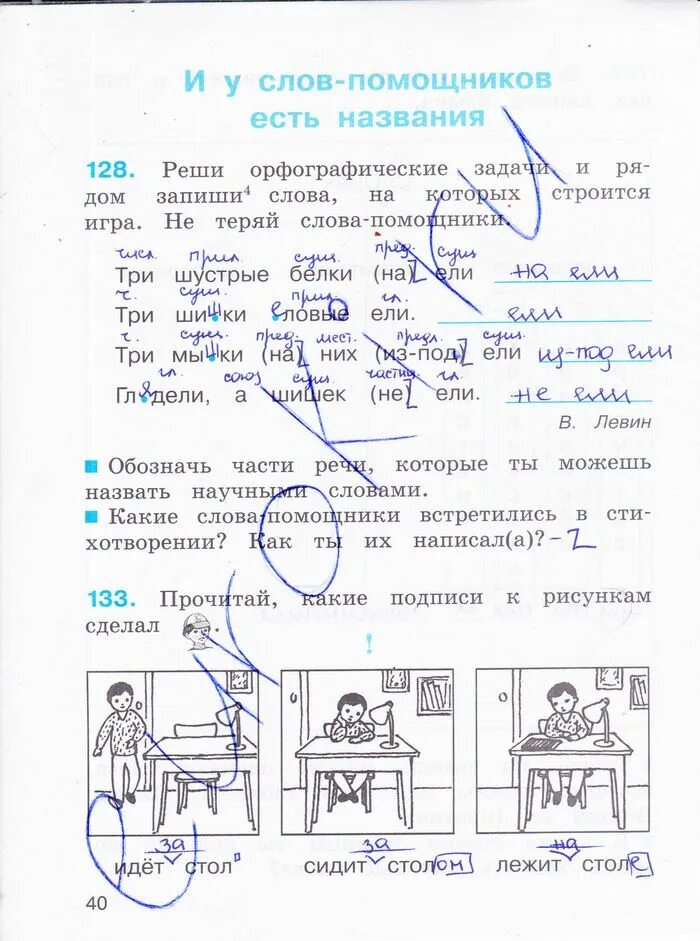 И у слов-помощников
есть названия
128. Реши орфографические задачи и ря-
дом запиши⁴ слова, на которых строится
игра. Не теряй слова-помощники.
числ. прил. сущ. пред. сущ
Три шустрые белки (на) ели на ели
ч. сущ. прил. гл.
Три шишки еловые ели. ели
ч. сущ. пред. мест. предл. сущ.
Три мышки (на) них (из-под) ели из-под ели
гл. союз сущ. частиц. гл.
Глядели, а шишек (не) ели. не ели
В. Левин
Обозначь части речи, которые ты можешь
назвать научными словами.
Какие слова-помощники встретились в сти-
хотворении? Как ты их написал(а)? – Z
133. Прочитай, какие подписи к рисункам
сделал .
!
за за на
идёт стол сидит столом лежит столе
40